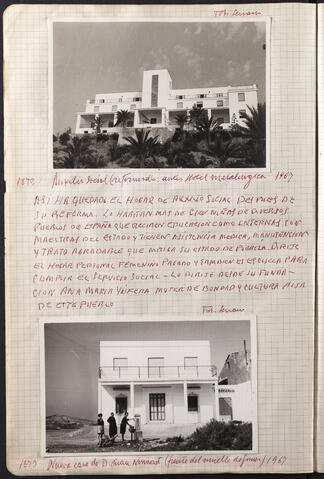 Fot. Seman
1878 Auxilio Social (reformado); antes Hotel Metalúrgica 1967
ASI HA QUEDADO EL HOGAR DE AUXILIO SOCIAL DESPUES DE
SU REFORMA. LO HABITAN MAS DE CIEN NIÑAS DE DIVERSOS
PUEBLOS DE ESPAÑA QUE RECIBEN EDUCACION COMO INTERNAS CON
MAESTRAS DEL ESTADO Y TIENEN ASISTENCIA MEDICA, MANUTENCION
Y TRATO AGRADABLE QUE SU ESTADO DE POBREZA. DIRIGE
EL HOGAR PERSONAL FEMENINO PAGADO Y TAMBIEN ES ESCUELA PARA
CUMPLIR EL SERVICIO SOCIAL - LO DIRIGE DESDE SU FUNDA-
CION ANA MARIA MUJER DE BONDAD Y CULTURA HIJA
DE ESTE PUEBLO
Fot. Seman
1879 Nueva casa de D. Juan (frente del muelle) 1967